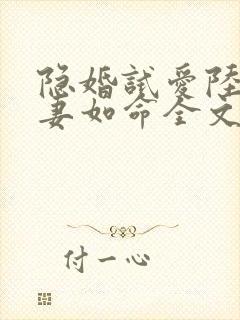 隐婚試爱陸
妻如命全文
付一心